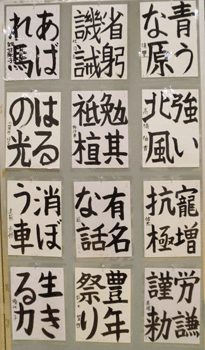 あば
れ馬
省躬
譏誡
青う
な原
はる
の光
勉其
祗植
強い
北風
消ぼ
う車
有名
な話
寵增
抗極
生き
る力
豊年
祭り
労謙
謹勅